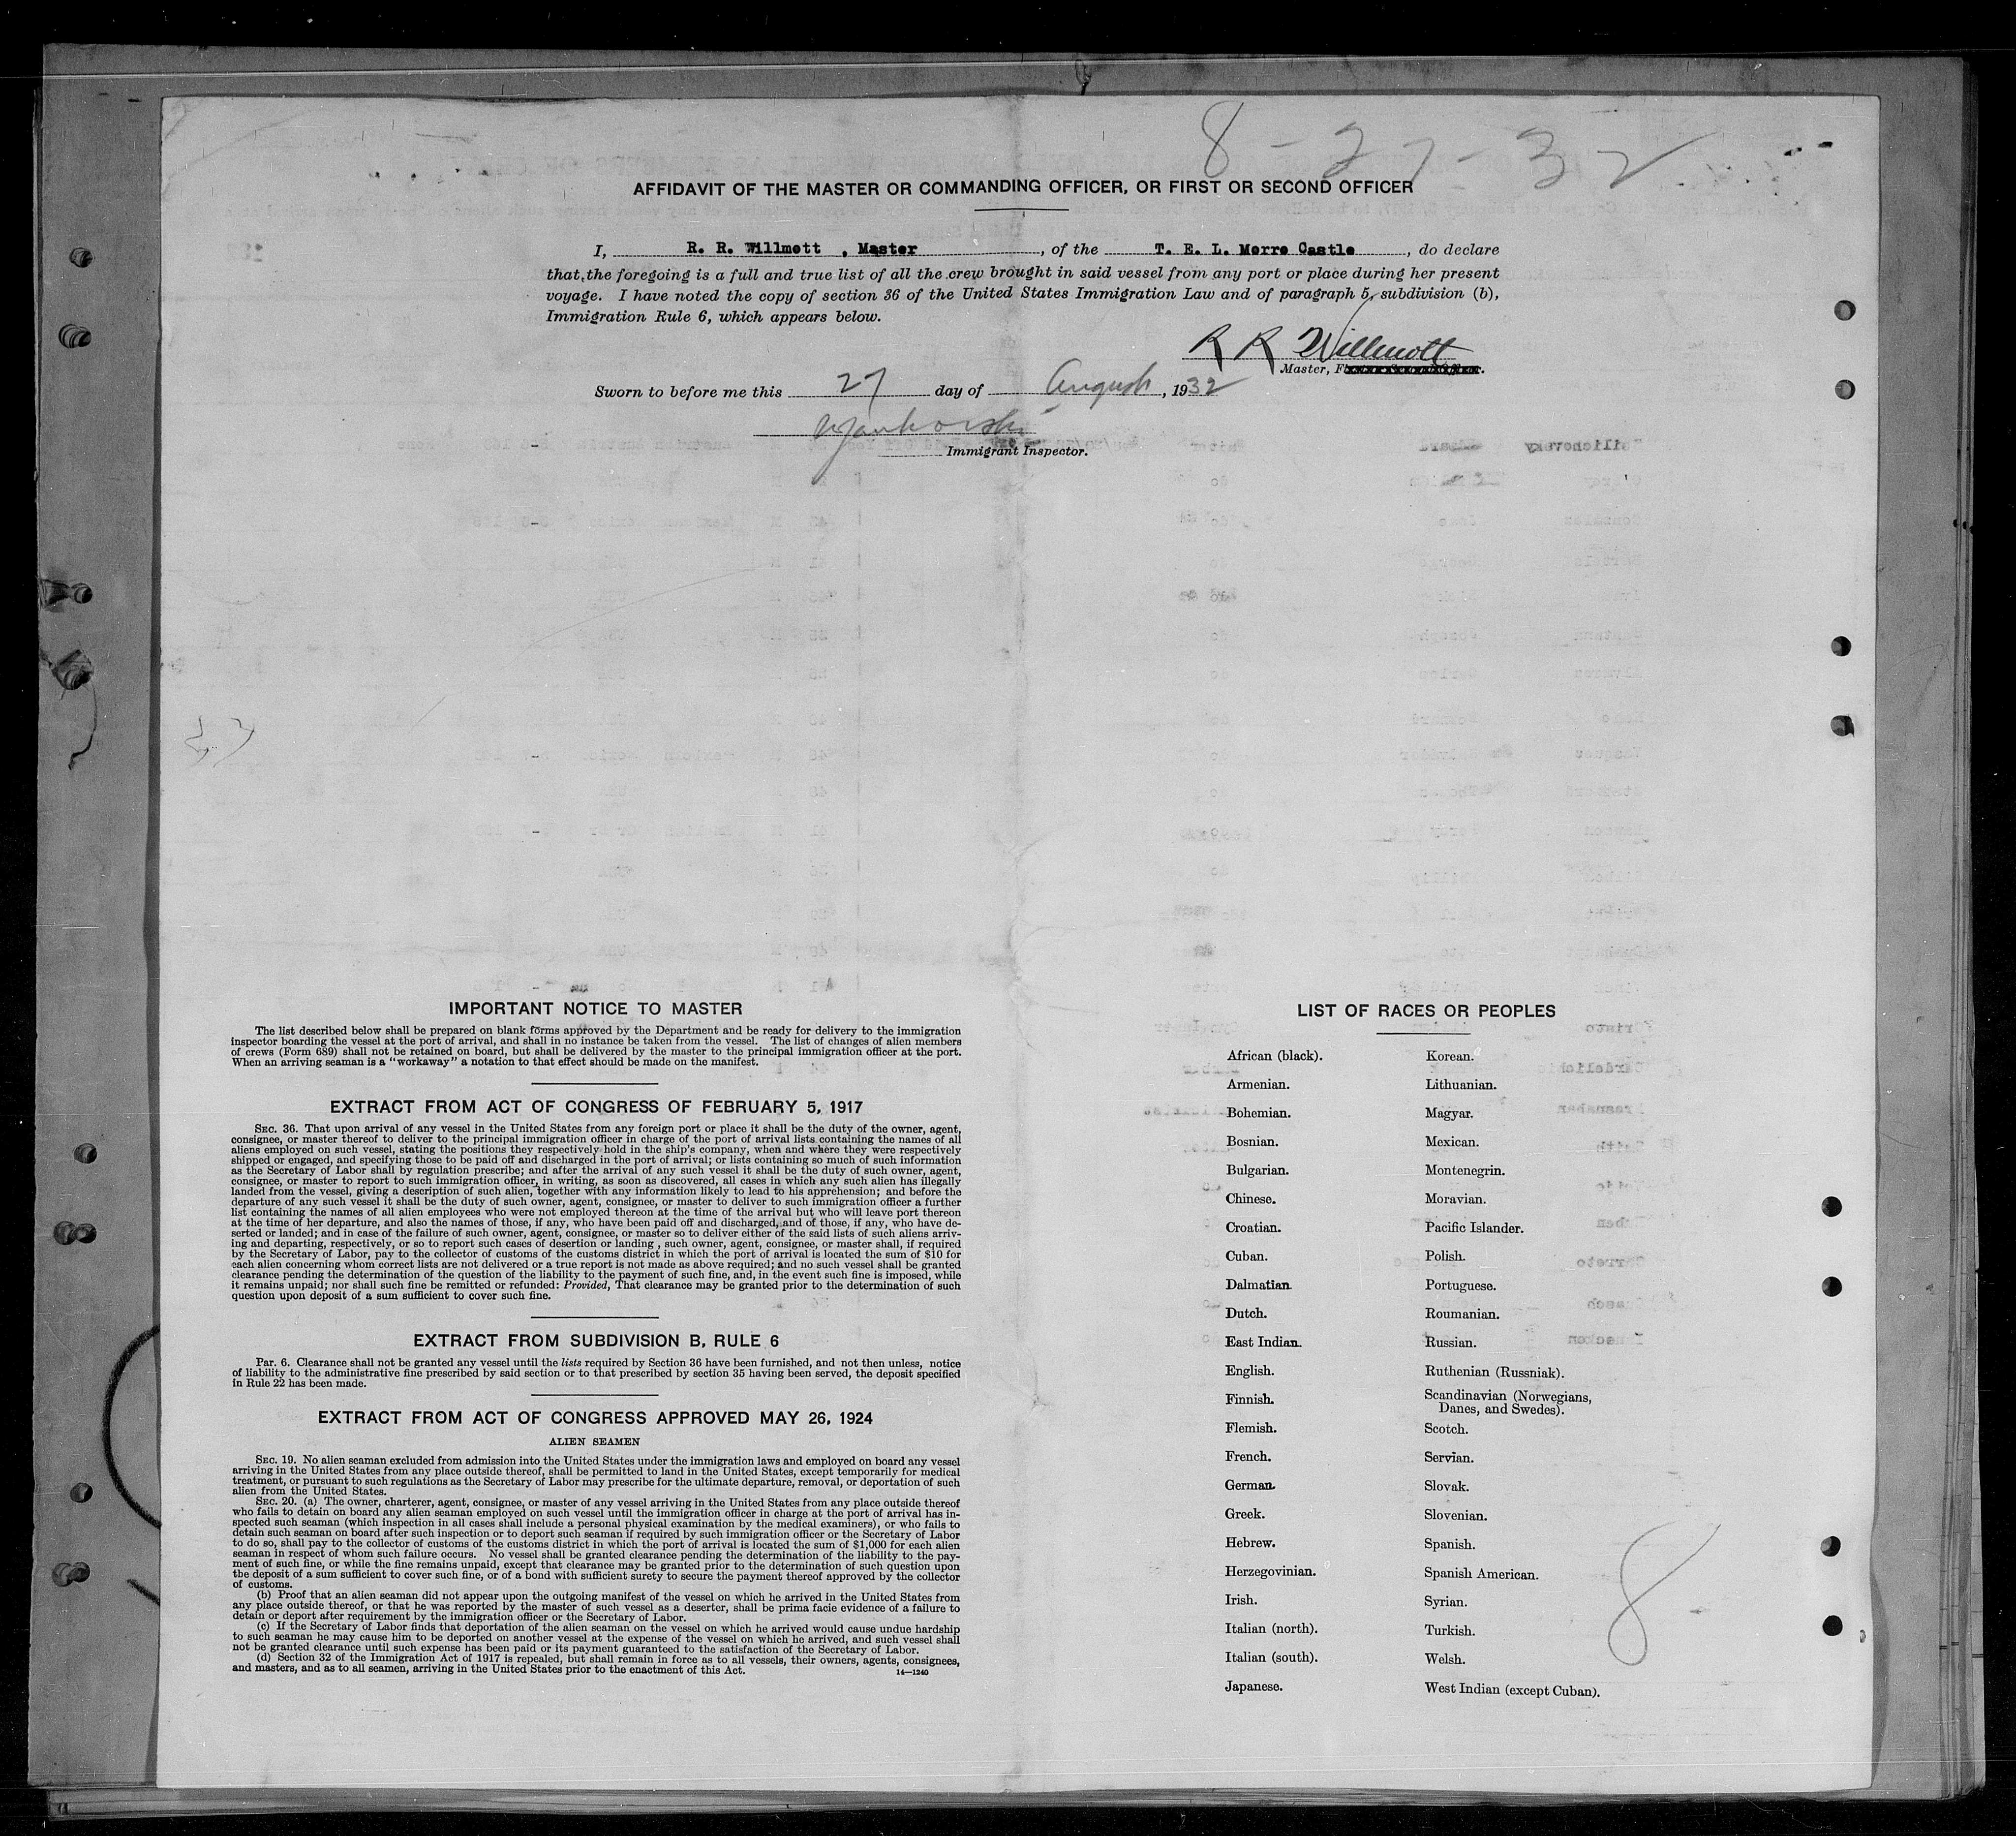 8-27-32
AFFIDAVIT OF THE MASTER OR COMMANDING OFFICER, OR FIRST OR SECOND OFFICER
I, R. R. Willmott , Master, of the T. E. L. Morro Castle, do declare
that the foregoing is a full and true list of all the crew brought in said vessel from any port or place during her present
voyage. I have noted the copy of section 36 of the United States Immigration Law and of paragraph 5, subdivision (b),
Immigration Rule 6, which appears below.
R R Willmott
Master,
Sworn to before me this 27 day of August, 1932
Immigrant Inspector.
IMPORTANT NOTICE TO MASTER
The list described below shall be prepared on blank forms approved by the Department and be ready for delivery to the immigration
inspector boarding the vessel at the port of arrival, and shall in no instance be taken from the vessel. The list of changes of alien members
of crews (Form 689) shall not be retained on board, but shall be delivered by the master to the principal immigration officer at the port.
When an arriving seaman is a "workaway" a notation to that effect should be made on the manifest.
EXTRACT FROM ACT OF CONGRESS OF FEBRUARY 5, 1917
SEC. 36. That upon arrival of any vessel in the United States from any foreign port or place it shall be the duty of the owner, agent,
consignee, or master thereof to deliver to the principal immigration officer in charge of the port of arrival lists containing the names of all
aliens employed on such vessel, stating the positions they respectively hold in the ship's company, when and where they were respectively
shipped or engaged, and specifying those to be paid off and discharged in the port of arrival; or lists containing so much of such information
as the Secretary of Labor shall by regulation prescribe; and after the arrival of any such vessel it shall be the duty of such owner, agent,
consignee, or master to report to such immigration officer, in writing, as soon as discovered, all cases in which any such alien has illegally
landed from the vessel, giving a description of such alien, together with any information likely to lead to his apprehension; and before the
departure of any such vessel it shall be the duty of such owner, agent, consignee, or master to deliver to such immigration officer a further
list containing the names of all alien employees who were not employed thereon at the time of the arrival but who will leave port thereon
at the time of her departure, and also the names of those, if any, who have been paid off and discharged, and of those, if any, who have de-
serted or landed; and in case of the failure of such owner, agent, consignee, or master so to deliver either of the said lists of such aliens arriv-
ing and departing, respectively, or so to report such cases of desertion or landing , such owner, agent, consignee, or master shall, if required
by the Secretary of Labor, pay to the collector of customs of the customs district in which the port of arrival is located the sum of $10 for
each alien concerning whom correct lists are not delivered or a true report is not made as above required; and no such vessel shall be granted
clearance pending the determination of the question of the liability to the payment of such fine, and, in the event such fine is imposed, while
it remains unpaid; nor shall such fine be remitted or refunded: Provided, That clearance may be granted prior to the determination of such
question upon deposit of a sum sufficient to cover such fine.
EXTRACT FROM SUBDIVISION B, RULE 6
PAR. 6. Clearance shall not be granted any vessel until the lists required by Section 36 have been furnished, and not then unless, notice
of liability to the administrative fine prescribed by said section or to that prescribed by section 35 having been served, the deposit specified
in Rule 22 has been made.
EXTRACT FROM ACT OF CONGRESS APPROVED MAY 26, 1924
ALIEN SEAMEN
SEC. 19. No alien seaman excluded from admission into the United States under the immigration laws and employed on board any vessel
arriving in the United States from any place outside thereof, shall be permitted to land in the United States, except temporarily for medical
treatment, or pursuant to such regulations as the Secretary of Labor may prescribe for the ultimate departure, removal, or deportation of such
alien from the United States.
SEC. 20. (a) The owner, charterer, agent, consignee, or master of any vessel arriving in the United States from any place outside thereof
who fails to detain on board any alien seaman employed on such vessel until the immigration officer in charge at the port of arrival has in-
spected such seaman (which inspection in all cases shall include a personal physical examination by the medical examiners), or who fails to
detain such seaman on board after such inspection or to deport such seaman if required by such immigration officer or the Secretary of Labor
to do so, shall pay to the collector of customs of the customs district in which the port of arrival is located the sum of $1,000 for each alien
seaman in respect of whom such failure occurs. No vessel shall be granted clearance pending the determination of the liability to the pay-
ment of such fine, or while the fine remains unpaid, except that clearance may be granted prior to the determination of such question upon
the deposit of a sum sufficient to cover such fine, or of a bond with sufficient surety to secure the payment thereof approved by the collector
of customs.
(b) Proof that an alien seaman did not appear upon the outgoing manifest of the vessel on which he arrived in the United States from
any place outside thereof, or that he was reported by the master of such vessel as a deserter, shall be prima facie evidence of a failure to
detain or deport after requirement by the immigration officer or the Secretary of Labor.
(c) If the Secretary of Labor finds that deportation of the alien seaman on the vessel on which he arrived would cause undue hardship
to such seaman he may cause him to be deported on another vessel at the expense of the vessel on which he arrived, and such vessel shall
not be granted clearance until such expense has been paid or its payment guaranteed to the satisfaction of the Secretary of Labor.
(d) Section 32 of the Immigration Act of 1917 is repealed, but shall remain in force as to all vessels, their owners, agents, consignees,
and masters, and as to all seamen, arriving in the United States prior to the enactment of this Act.
14—1240
LIST OF RACES OR PEOPLES
African (black).
Armenian.
Bohemian.
Bosnian.
Bulgarian.
Chinese.
Croatian.
Cuban.
Dalmatian.
Dutch.
East Indian.
English.
Finnish.
Flemish.
French.
German.
Greek.
Hebrew.
Herzegovinian.
Irish.
Italian (north).
Italian (south).
Japanese.
Korean.
Lithuanian.
Magyar.
Mexican.
Montenegrin.
Moravian.
Pacific Islander.
Polish.
Portuguese.
Roumanian.
Russian.
Ruthenian (Russniak).
Scandinavian (Norwegians,
Danes, and Swedes).
Scotch.
Servian.
Slovak.
Slovenian.
Spanish.
Spanish American.
Syrian.
Turkish.
Welsh.
West Indian (except Cuban).
8